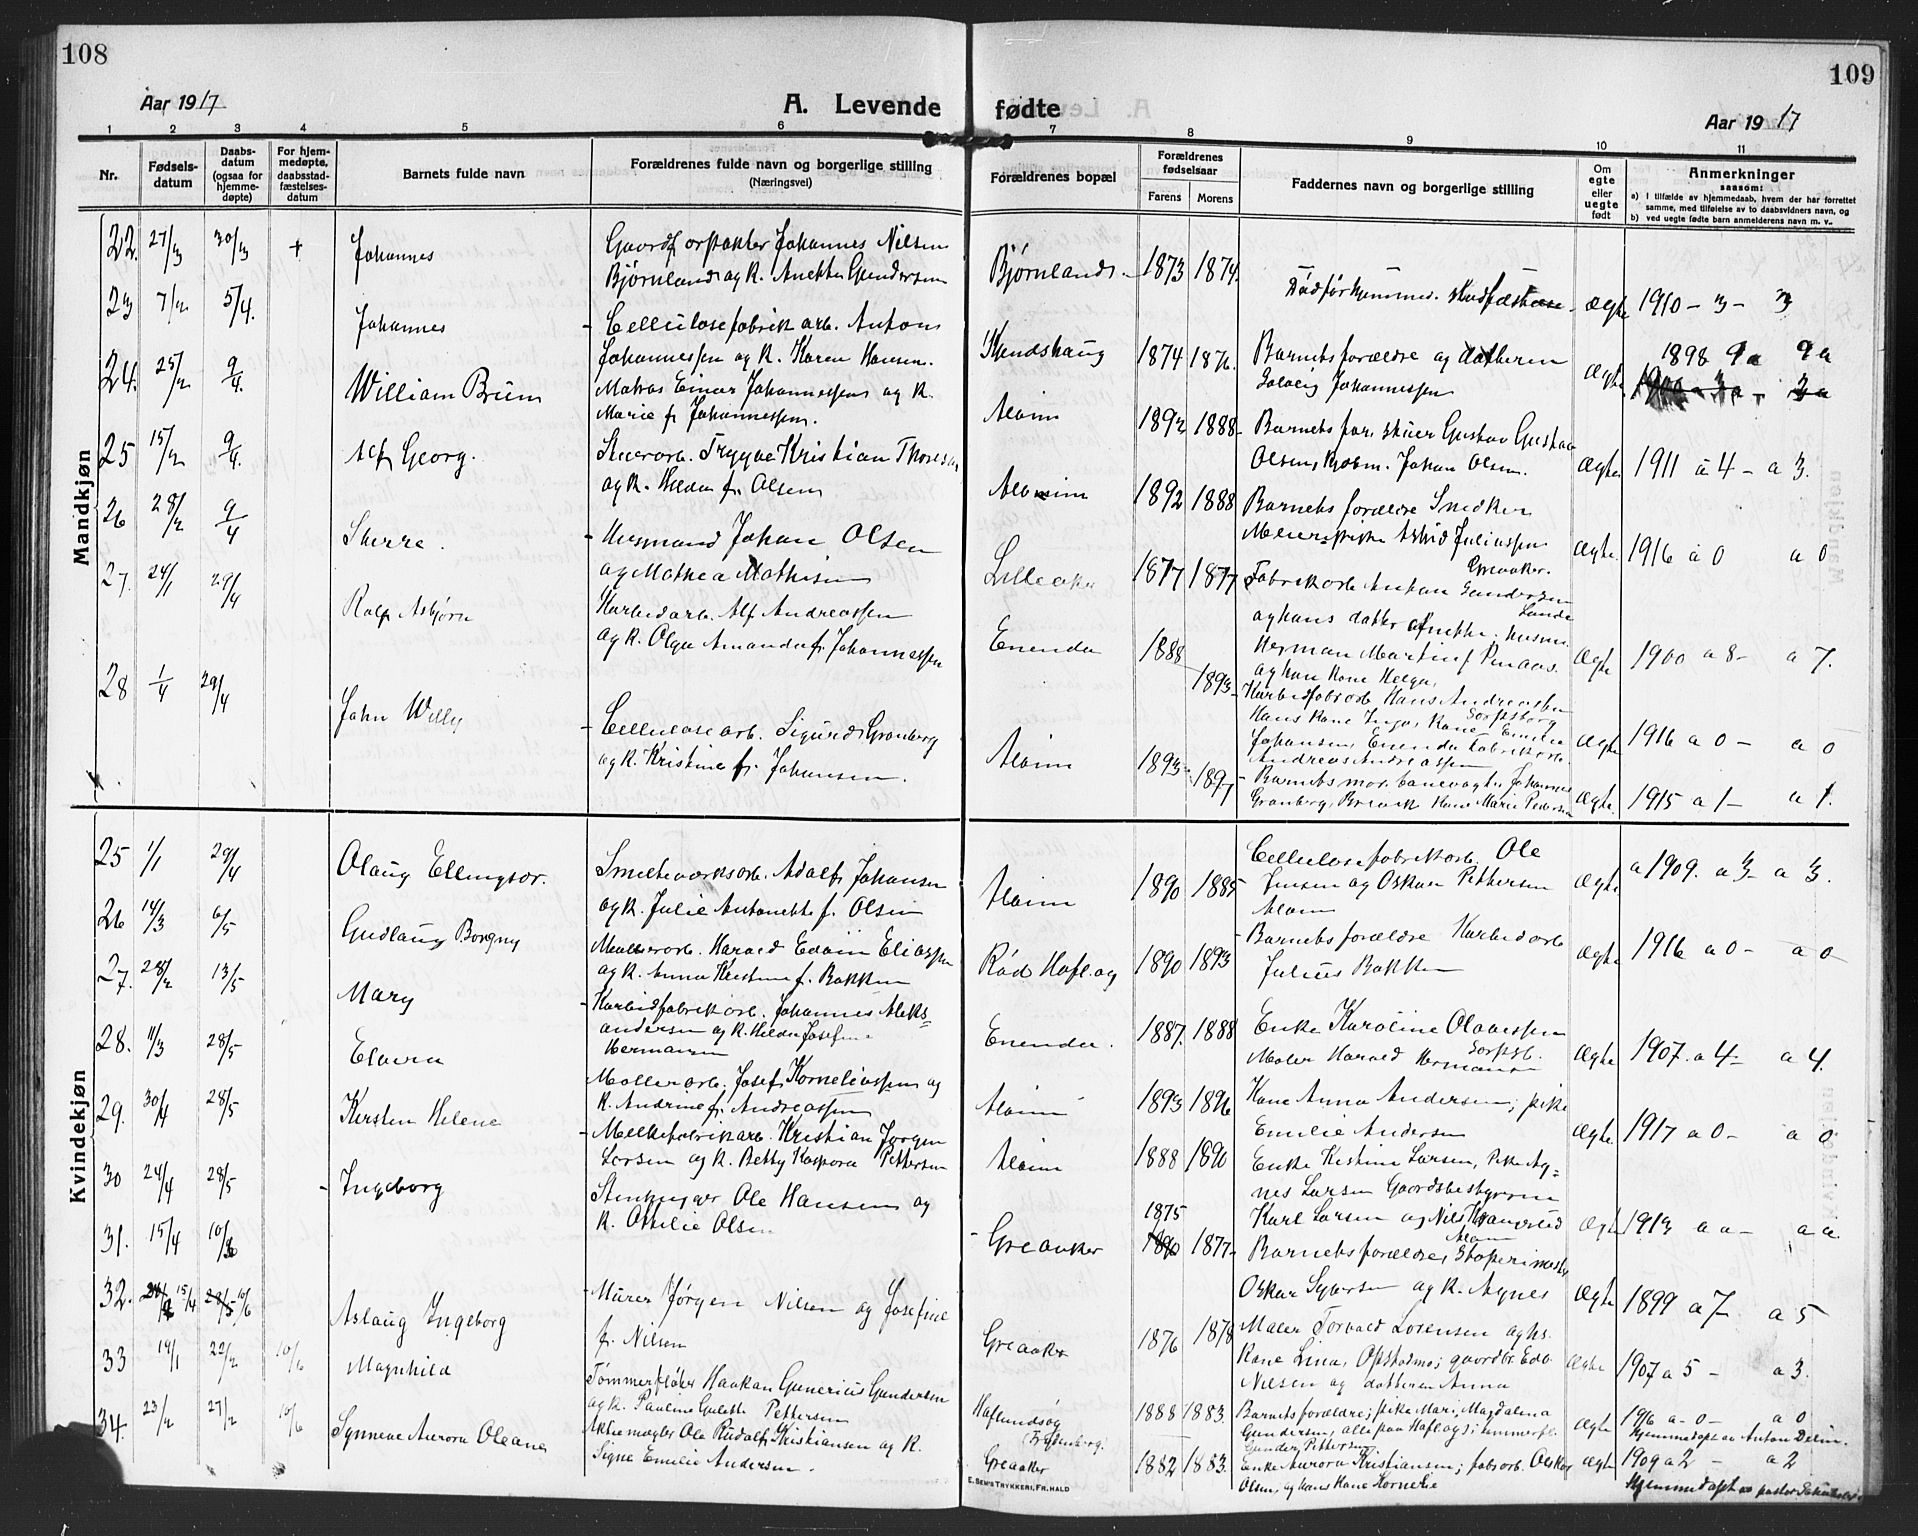 108
109
Aar 1917
A. Levende fødte
Aar 1917
1 2 3 4 5 6 7 8 9 10 11
Nr.
Fødsels-
datum
Daabs-
datum
(ogsaa for
hjemme-
døpte)
For hjem-
medøpte,
daabsstad-
fæstelses-
datum
Barnets fulde navn
Forældrenes fulde navn og borgerlige stilling
(Næringsvei)
Forældrenes bopæl
Forældrenes
fødselsaar
Farens Morens
Faddernes navn og borgerlige stilling
Om
egte
eller
uegte
født
Anmerkninger
saasom:
a) I tilfælde av hjemmedaab, hvem der har forrettet
samme, med tilføielse av to daabsvidners navn, og
b) ved uegte fødte barn anmelderens navn m. v..
Mandkjøn
22. 27/3 30/3 + Johannes
Johannes Nilsen
Bjørnland og k. Anette Gundersen
Bjørnland 1873 1874 Ægte 1910 - 3 - 3
23 7/2 5/4. Johannes
Cellulosefabrik arb. Anton
Johannessen og k. Karen Hansen.
1874 1876. Barnets forældre og datteren
Solveig Johannessen
Ægte 1898 9 a 9 a
24. 25/2 9/4. William Brum
Matros Einar Johannessen og k.
Marie f. Johannessen.
Alvim 1892 1888 Barnets far, Gustav
Olsen, Johan Olsen.
Ægte 1911 a 4 - a 3.
25 15/2 9/4. Alf Georg.
Trygve Kristian
og k. Hilda f. Olsen
Alvim 1892 1888 Barnets forældre Snedker
Astrid Juliussen
Greaaker.
Ægte 1916 a 0 a 0
26 28/2 9/4 Sverre.
Husmand Johan Olsen
og Mathea Mathisen
Lilleaker 1877 1877 Fabrikarb. Anton Gundersen
og hans datter
Ægte 1900 a 8 - a 7.
27. 24/1 29/4 Rolf Asbjørn
Karbidarb. Alf Andreassen
og k. Olga Amanda f. Johannessen
Enenda 1888 1893 Herman Martin
og han kone Helga,
Karbidfabrarb. Hans Andreassen
Hans kone Inga, kone Emilie
Sarpsborg
Johansen, Enenda Fabrikarb.
Andreas Andreassen
Ægte 1916 a 0 - a 0
28 1/4 29/4 John Willy
Cellulosearb. Sigurd Granberg
og k. Kristine f. Johansen.
Alvim 1893 1891 Barnets mor, banevogter Johannes
Granberg, Kone Marie Pedersen
Ægte. 1915 a 1 - a 1.
Kvindekjøn
25 1/1 29/4 Olaug Ellingsor.
Smelteverksarb. Adolf Johansen
og k. Julie Antonette f. Olsen
Alvim 1890 1885 Cellulosefabrikarb. Ole
Jensen og Oskar Pettersen
Alvim
Ægte a 1909. a 3 - a 3.
26 14/3 6/5 Gudlaug Borgny
Møllerarb. Harald Edvin Eliassen
og k. Anna Kristine f. Bakken
Rød Hafl.og 1890 1893 Barnets forældre Karbidarb
Julius Bakken
Ægte 1916 a 0 - a 0
27. 28/2 13/5 Mary
Karbidfabrikarb. Johannes Aleks-
andersen og k. Hilda Josefine
Hermansen
Enenda. 1887. 1888 Enke Karoline Olavessen
Maler Harald Hermansen
Sarpsb.
Ægte 1907. a 4 - a 4.
28. 11/3 28/5 Elvira
Møllerarb. Josef Korneliussen og
k. Andrine f. Andreassen
Alvim 1893 1896 Kone Anna Andersen, pike
Emilie Andersen
Ægte. 1917 a 0 - a 0
29. 30/4 28/5 Kirsten Helene
Melkefabrikarb. Kristian Jørgen
Larsen og k. Betty Kaspara Pettersen
Alvim 1888 1890 Enke Kistine Larsen, Pike Ag-
nes Larsen Gaardsbestyrerin
Karl Larsen og Nils
Alvim
Ægte 1913 a a - a a
30 24/4 28/5 Ingeborg
Stenhugger Ole Hansen og
k. Ottilie Olsen
Greaaker 1875 1890 1877 Barnets forældre,
Oskar og k. Agnes
Ægte 1899 a 7 a 5
31. 15/4 10/6
32. 15/4 28/5 10/6 Aslaug Ingeborg
Murer Jørgen Nilsen og Josefine
f. Nilsen
Greaaker 1876 1878 Maler Torvald Lorensen og hs.
kone Lina, Opstadmo; gaardbr. Edv.
Nilsen og datteren Anna
Ægte 1907 a 5 - a 3.
33 14/1 22/2 10/6 Magnhild
Tømmerfløter Haakon Gunerius Gundersen
og k. Pauline Gulette Pettersen
Haflundsøg
1888 1883. Barnets forældre; pike Mari Magdalena
Gundersen, alle paa Hafl.og; tømmerfl.
Gunder Pettersen
Ægte 1916 a - 0 - a 0
Hjemmedøpt av Anton Delin.
34. 23/2 27/2 10/6 Synnøve Aurora Oleane
Aktiemægler Ole Rudolf Kristiansen og k.
Signe Emilie Andersen.
Greaaker 1882 1883. Enke Aurora Kristiansen; fabarb. Oskar
Olsen, og hans kone Kornelie
Ægte 1909 a 2 - a 2
Hjemmedøpt av pastor
E. SEM'S TRYKKERI, FR.HALD